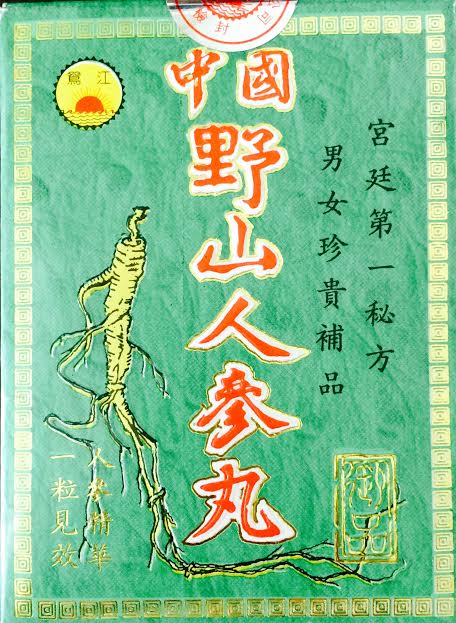 中國
野山人參丸
宮廷第一秘方
男女珍貴補品
鴛江
人參精華
一粒見效
御品
封